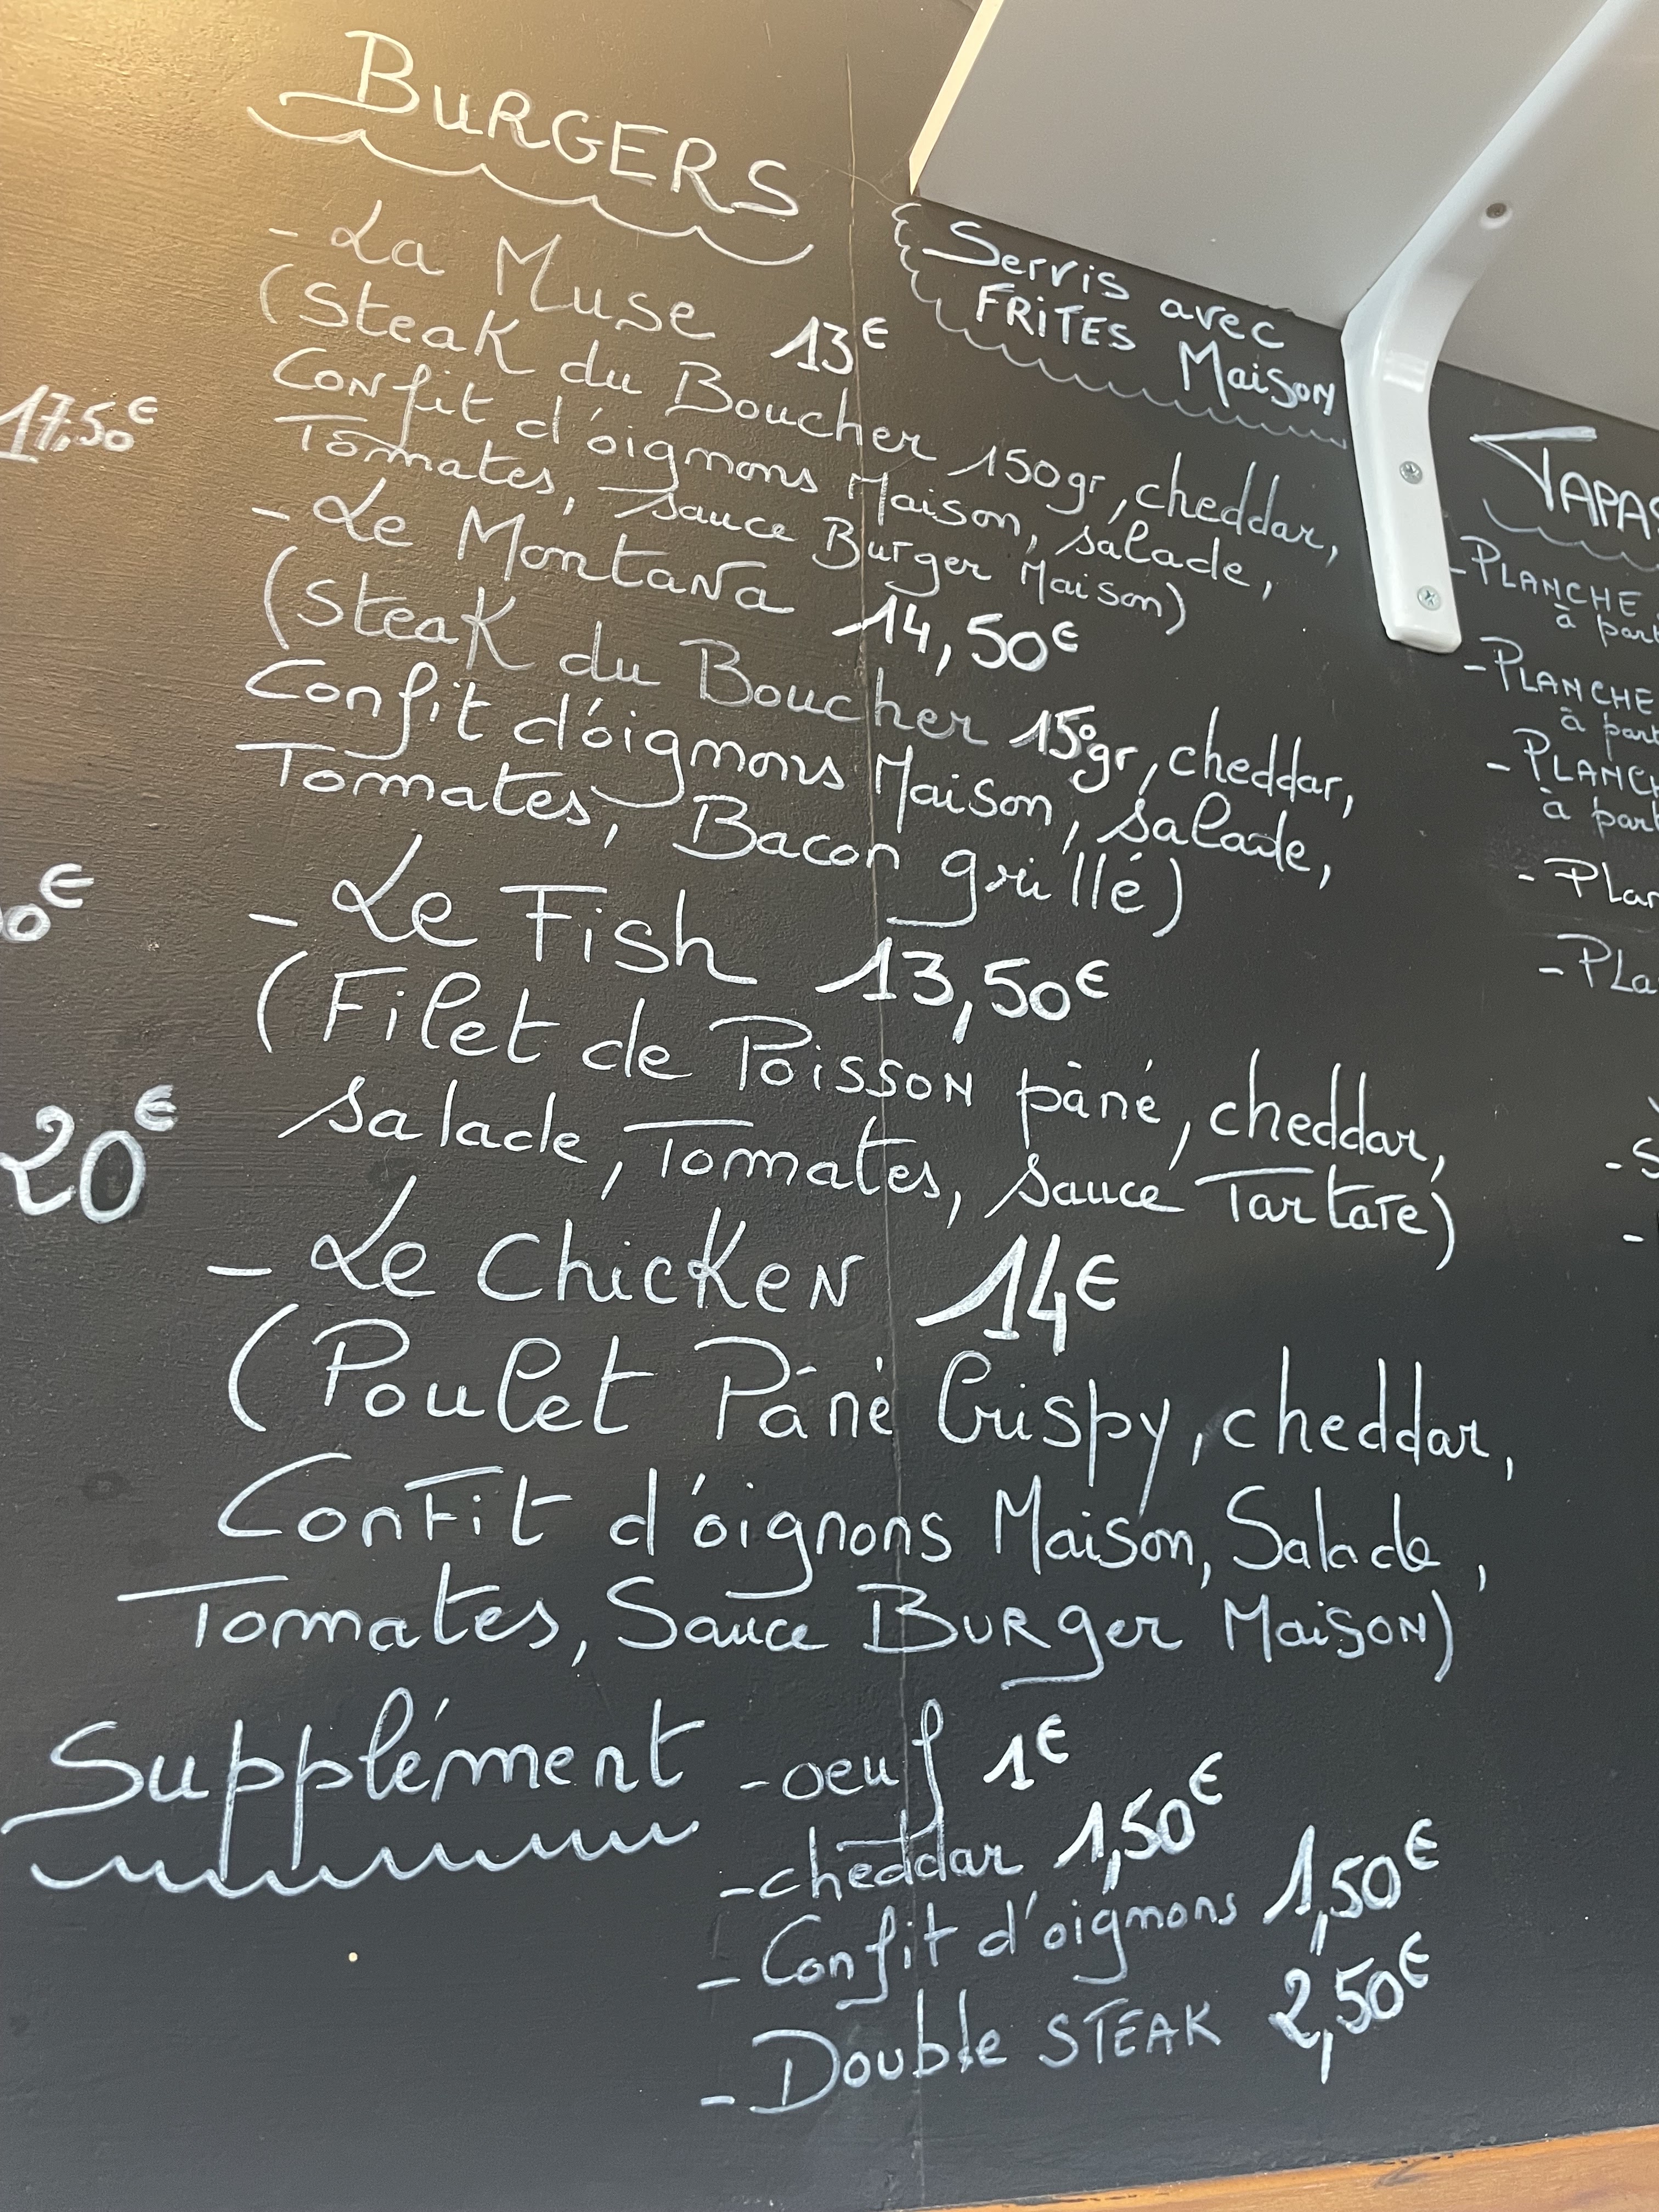 BURGERS
- La Muse 13€
(Steak du Boucher 150gr, cheddar,
Confit d'oignons Maison, salade,
Tomates, sauce Burger Maison)
- Le Montana 14,50€
(Steak du Boucher 150gr, cheddar,
Confit d'oignons Maison, salade,
Tomates, Bacon grillé)
- Le Fish 13,50€
(Filet de Poisson pâné, cheddar,
salade, Tomates, sauce Tartare)
- Le Chicken 14€
(Poulet Pané Crispy, cheddar,
Confit d'oignons Maison, Salade,
Tomates, Sauce Burger Maison)
Supplément
- oeuf 1€
- cheddar 1,50€
- Confit d'oignons 1,50€
- Double STEAK 2,50€
Servis avec
FRITES Maison
17,50€
0€
20€
TAPAS
- PLANCHE
à part
- PLANCHE
à part
- PLANCH
à part
- PLan
- PLa